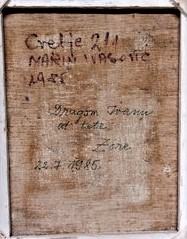 Cvetje 2/1
MARIN
1985
Dragom Ivanu
od tete
Zore
22.7.1985.